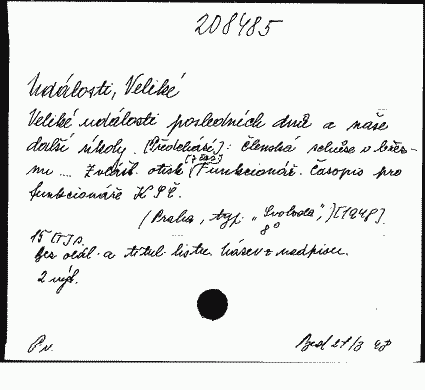 208485
Události, Veliké
Veliké události posledních dnů a naše
další úkoly. [Předcház.]: členská schůze v břez-
nu ... Zvlášt. otisk (Funkcionář. Časopis pro
funkcionáře KSČ.
(Praha, typ. „Svoboda",)[1948].
8°
15 [1] s.
Bez obál. a titul. listu. Název z nadpisu.
2 výt.
Pv.
21/3 48